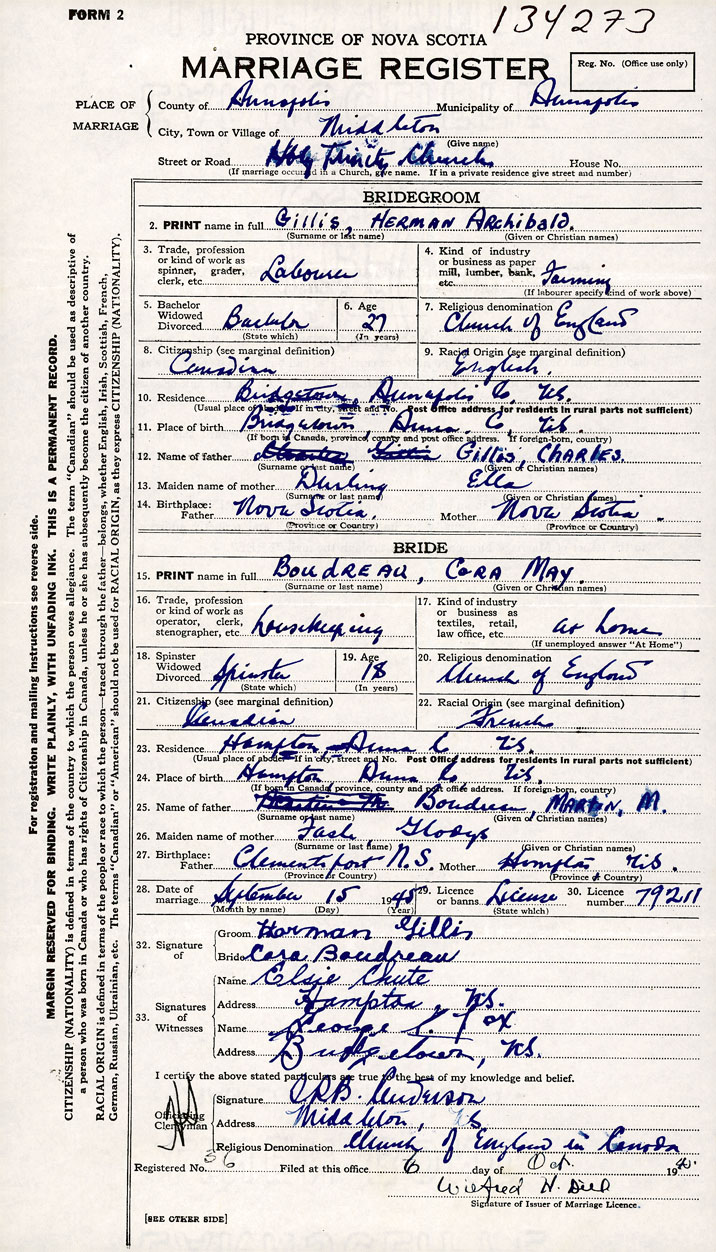 FORM 2
134273
PROVINCE OF NOVA SCOTIA
MARRIAGE REGISTER
Reg. No. (Office use only)
PLACE OF MARRIAGE
County of Annapolis Municipality of Annapolis
City, Town or Village of Middleton
(Give name)
Street or Road Holy Trinity Church House No.
(If marriage occurred in a Church, give name. If in a private residence give street and number)
BRIDEGROOM
2. PRINT name in full Gillis, HERMAN ARCHIBALD.
(Surname or last name) (Given or Christian names)
3. Trade, profession or kind of work as spinner, grader, clerk, etc. Labourer
4. Kind of industry or business as paper mill, lumber, bank, etc. Farming
(If labourer specify kind of work above)
5. Bachelor Widowed Divorced Bachelor
(State which)
6. Age 27
(In years)
7. Religious denomination
Church of England
8. Citizenship (see marginal definition)
Canadian
9. Racial Origin (see marginal definition)
English.
10. Residence Bridgetown, Annapolis Co. N.S.
(Usual place of abode. If in city, street and No. Post Office address for residents in rural parts not sufficient)
11. Place of birth Bridgetown, Anna. Co, N.S.
(If born in Canada, province, county and post office address. If foreign-born, country)
12. Name of father Gillis, CHARLES.
(Surname or last name) (Given or Christian names)
13. Maiden name of mother Durling Ella
(Surname or last name) (Given or Christian names)
14. Birthplace: Father Nova Scotia. Mother Nova Scotia.
(Province or Country) (Province or Country)
BRIDE
15. PRINT name in full BOUDREAU, CORA MAY.
(Surname or last name) (Given or Christian names)
16. Trade, profession or kind of work as operator, clerk, stenographer, etc. housekeeping
17. Kind of industry or business as textiles, retail, law office, etc. at home
(If unemployed answer "At Home")
18. Spinster Widowed Divorced Spinster
(State which)
19. Age 18
(In years)
20. Religious denomination
Church of England
21. Citizenship (see marginal definition)
Canadian
22. Racial Origin (see marginal definition)
French
23. Residence Hampton, Anna Co N.S.
(Usual place of abode. If in city, street and No. Post Office address for residents in rural parts not sufficient)
24. Place of birth Hampton Anna Co, N.S.
(If born in Canada, province, county and post office address. If foreign-born, country)
25. Name of father Boudreau, MARTIN, M.
(Surname or last name) (Given or Christian names)
26. Maiden name of mother Gladys
(Surname or last name) (Given or Christian names)
27. Birthplace: Father Clementsport N.S. Mother Hampton N.S.
(Province or Country) (Province or Country)
28. Date of marriage September 15 1945
(Month by name) (Day) (Year)
29. Licence or banns License
(State which)
30. Licence number 79211
32. Signature of
Groom Herman Gillis
Bride Cora Boudreau
33. Signatures of Witnesses
Name Elsie Chute
Address Hampton, N.S.
Name George Fox
Address Bridgetown, N.S.
I certify the above stated particulars are true to the best of my knowledge and belief.
Officiating Clergyman
Signature Anderson
Address Middleton, N.S.
Religious Denomination Church of England in Canada
Registered No. 36 Filed at this office 6 day of Oct. 194
Signature of Issuer of Marriage Licence.
[SEE OTHER SIDE]
For registration and mailing instructions see reverse side.
MARGIN RESERVED FOR BINDING. WRITE PLAINLY, WITH UNFADING INK. THIS IS A PERMANENT RECORD.
CITIZENSHIP (NATIONALITY) is defined in terms of the country to which the person owes allegiance. The term "Canadian" should be used as descriptive of
a person who was born in Canada or who has rights of Citizenship in Canada, unless he or she has subsequently become the citizen of another country.
RACIAL ORIGIN is defined in terms of the people or race to which the person—traced through the father—belongs, whether English, Irish, Scottish, French,
German, Russian, Ukrainian, etc. The terms "Canadian" or "American" should not be used for RACIAL ORIGIN, as they express CITIZENSHIP (NATIONALITY).